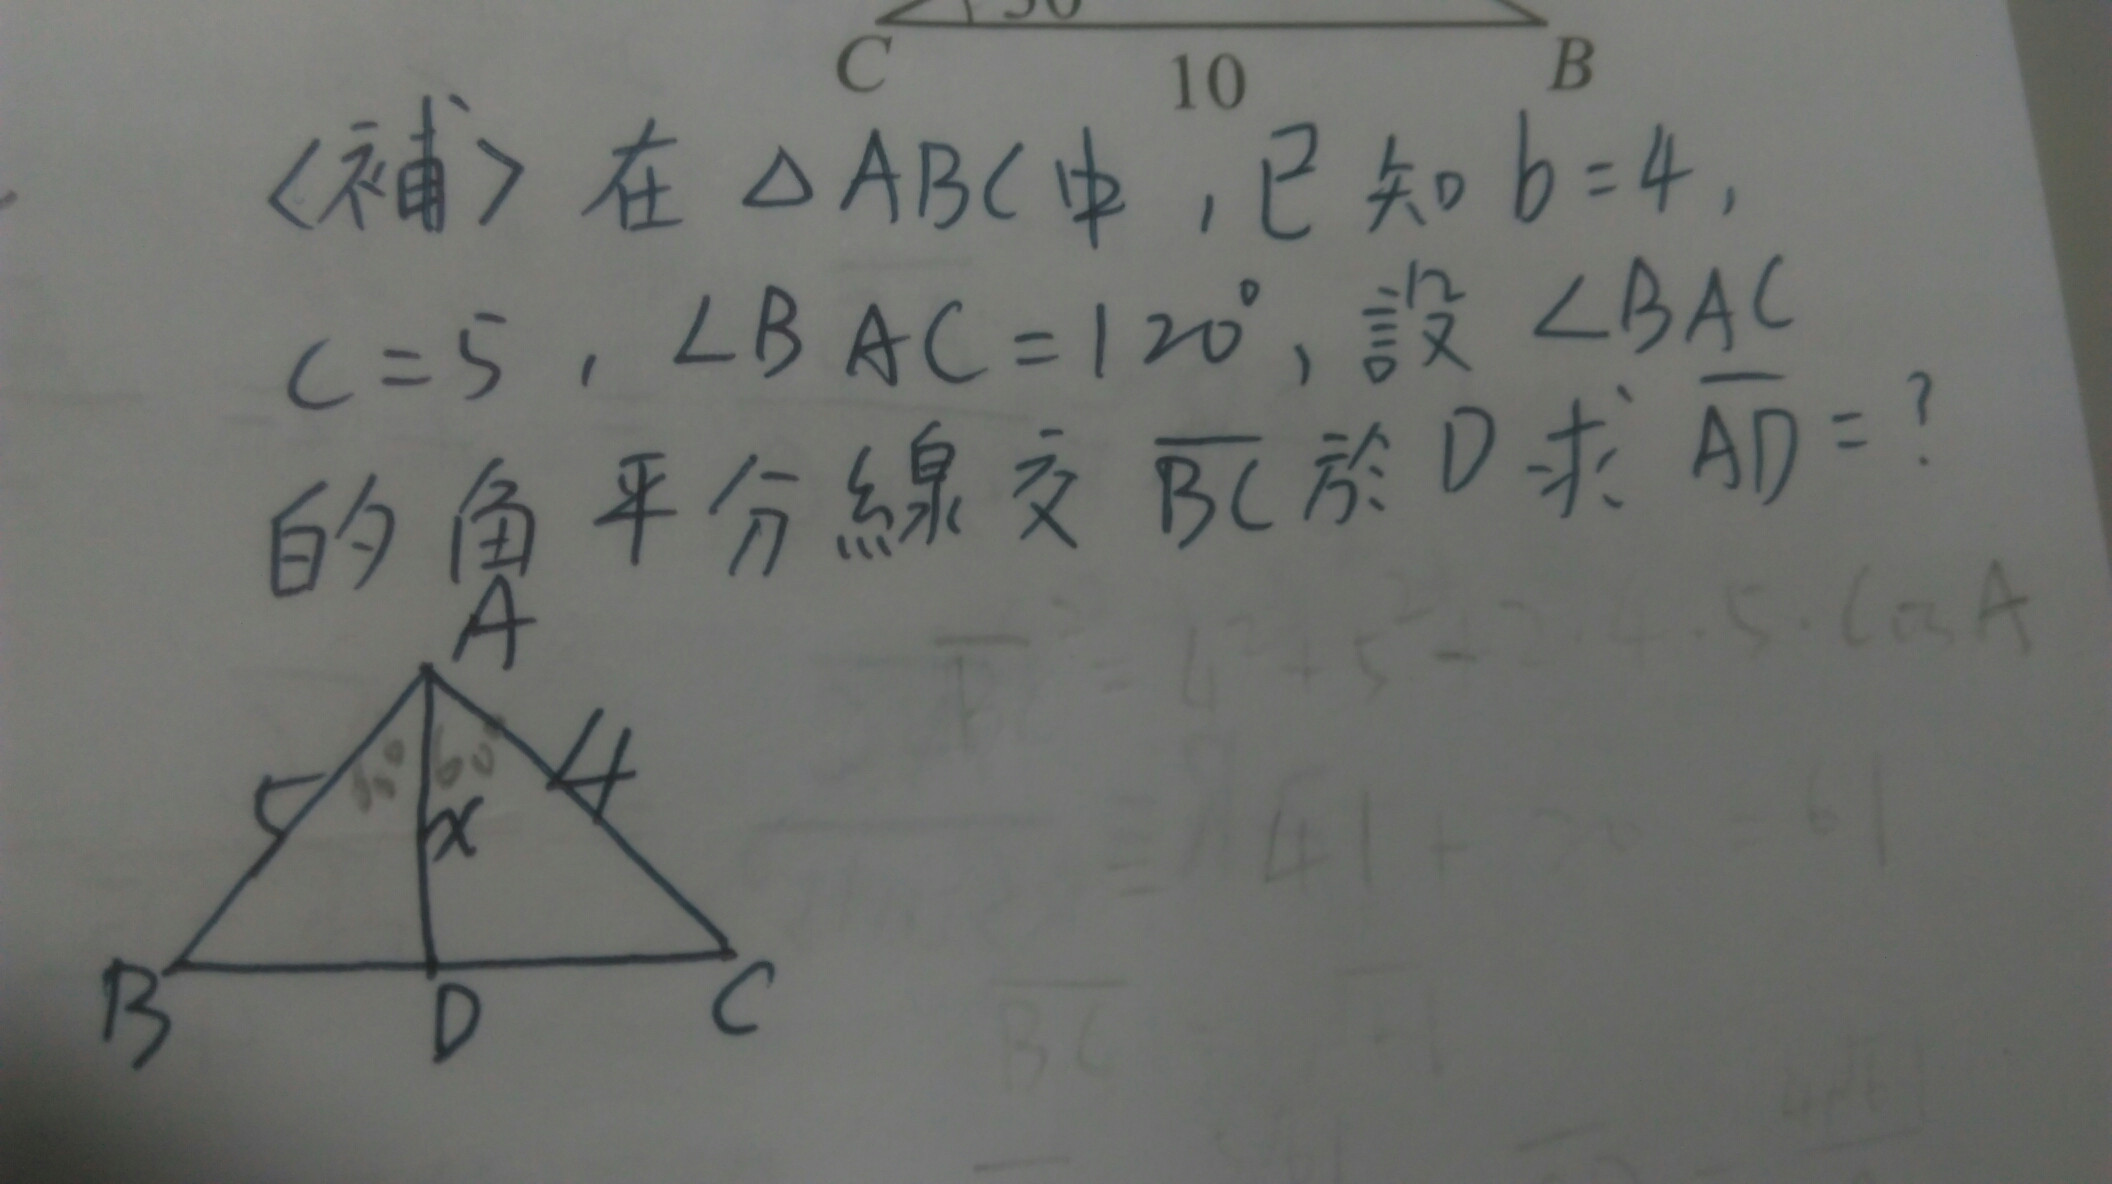 C 10 B
〈補〉在△ABC中,已知b=4,
c=5,∠BAC=120°,設∠BAC
的角平分線交BC於D求AD=?
A
5 60° 60° 4
x
B D C
= 4²+5²-2·4·5·CosA
= 41+20=61
BC